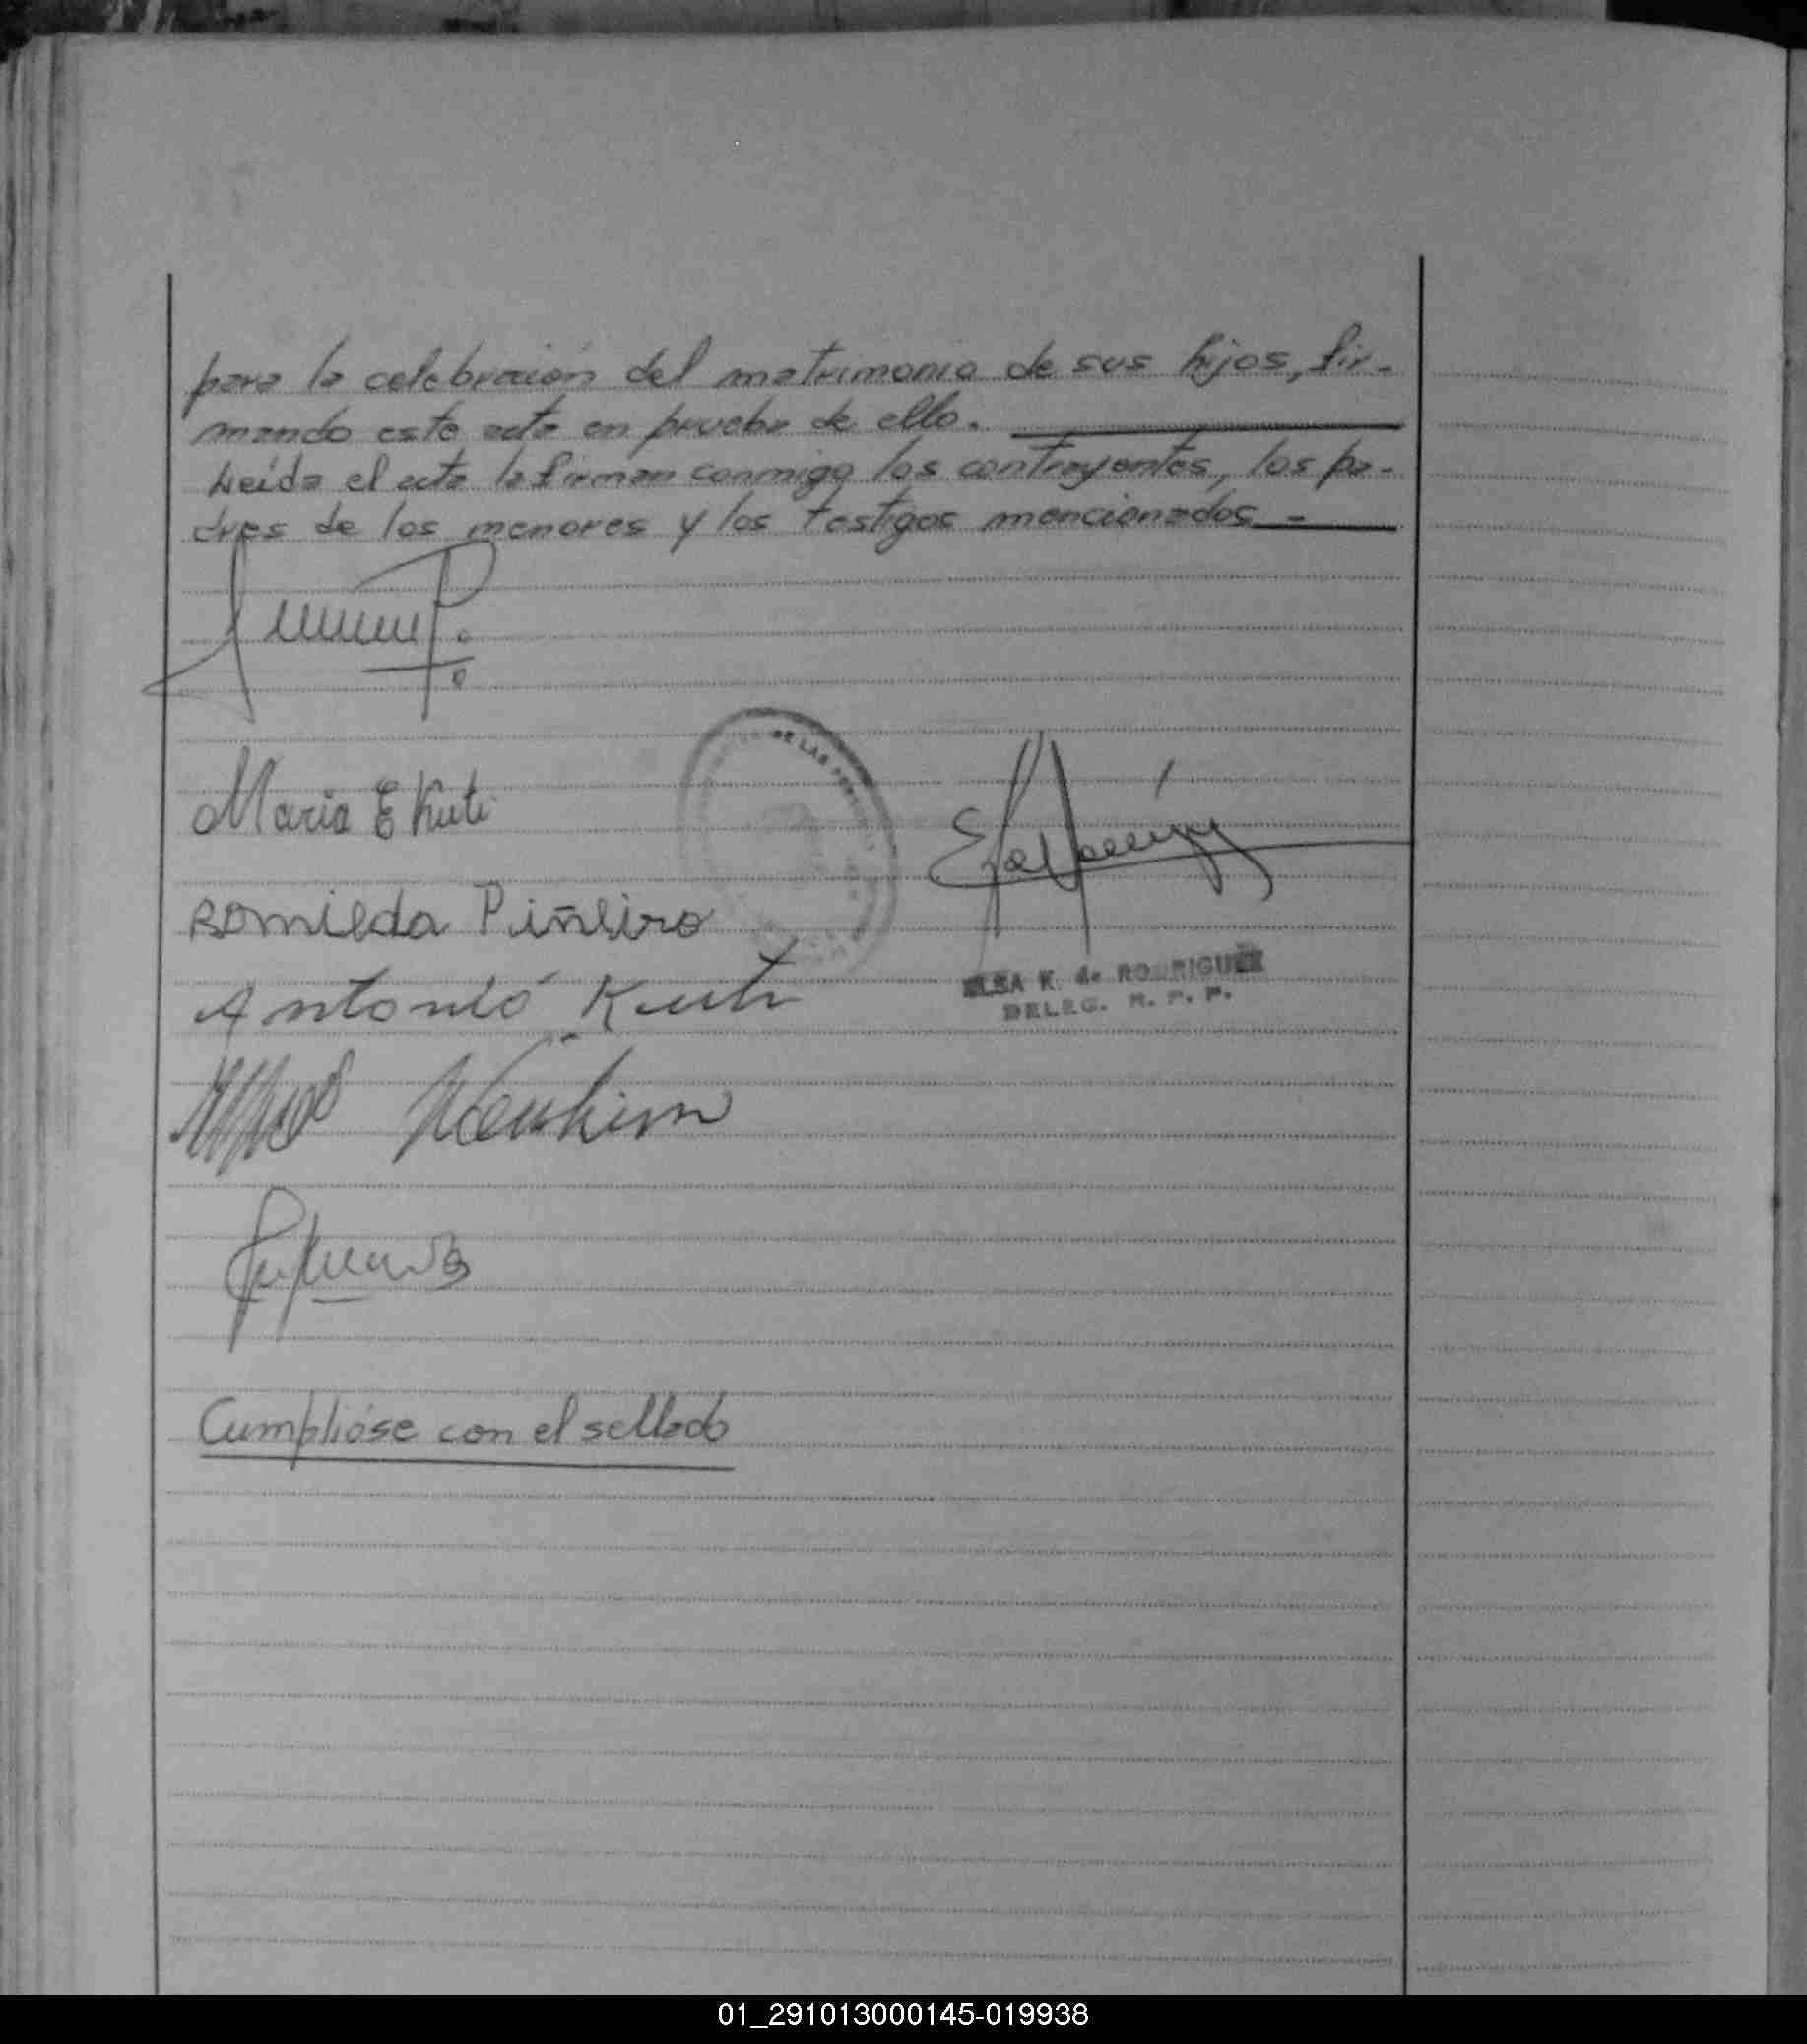 para la celebración del matrimonio de sus hijos, fir-
mando este acta en prueba de ello.
Leída el acta la firman conmigo los contrayentes, los pa-
dres de los menores y los testigos mencionados -
DE LAS
Maria E Kuti
Romilda Piñeiro
Antonio
ELSA K. de RODRIGUEZ
DELEG. R. P. P.
Cumplióse con el sellado
01_291013000145-019938